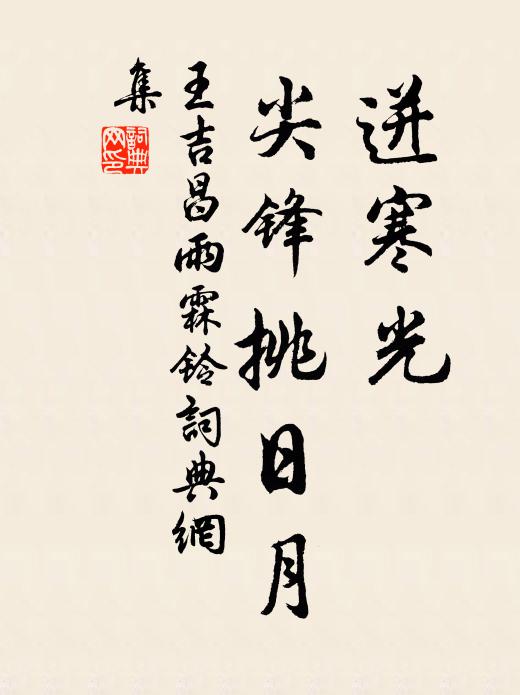 迸寒光
尖锋挑日月
王吉昌雨霖鈴詞典網
集
詞典
网印